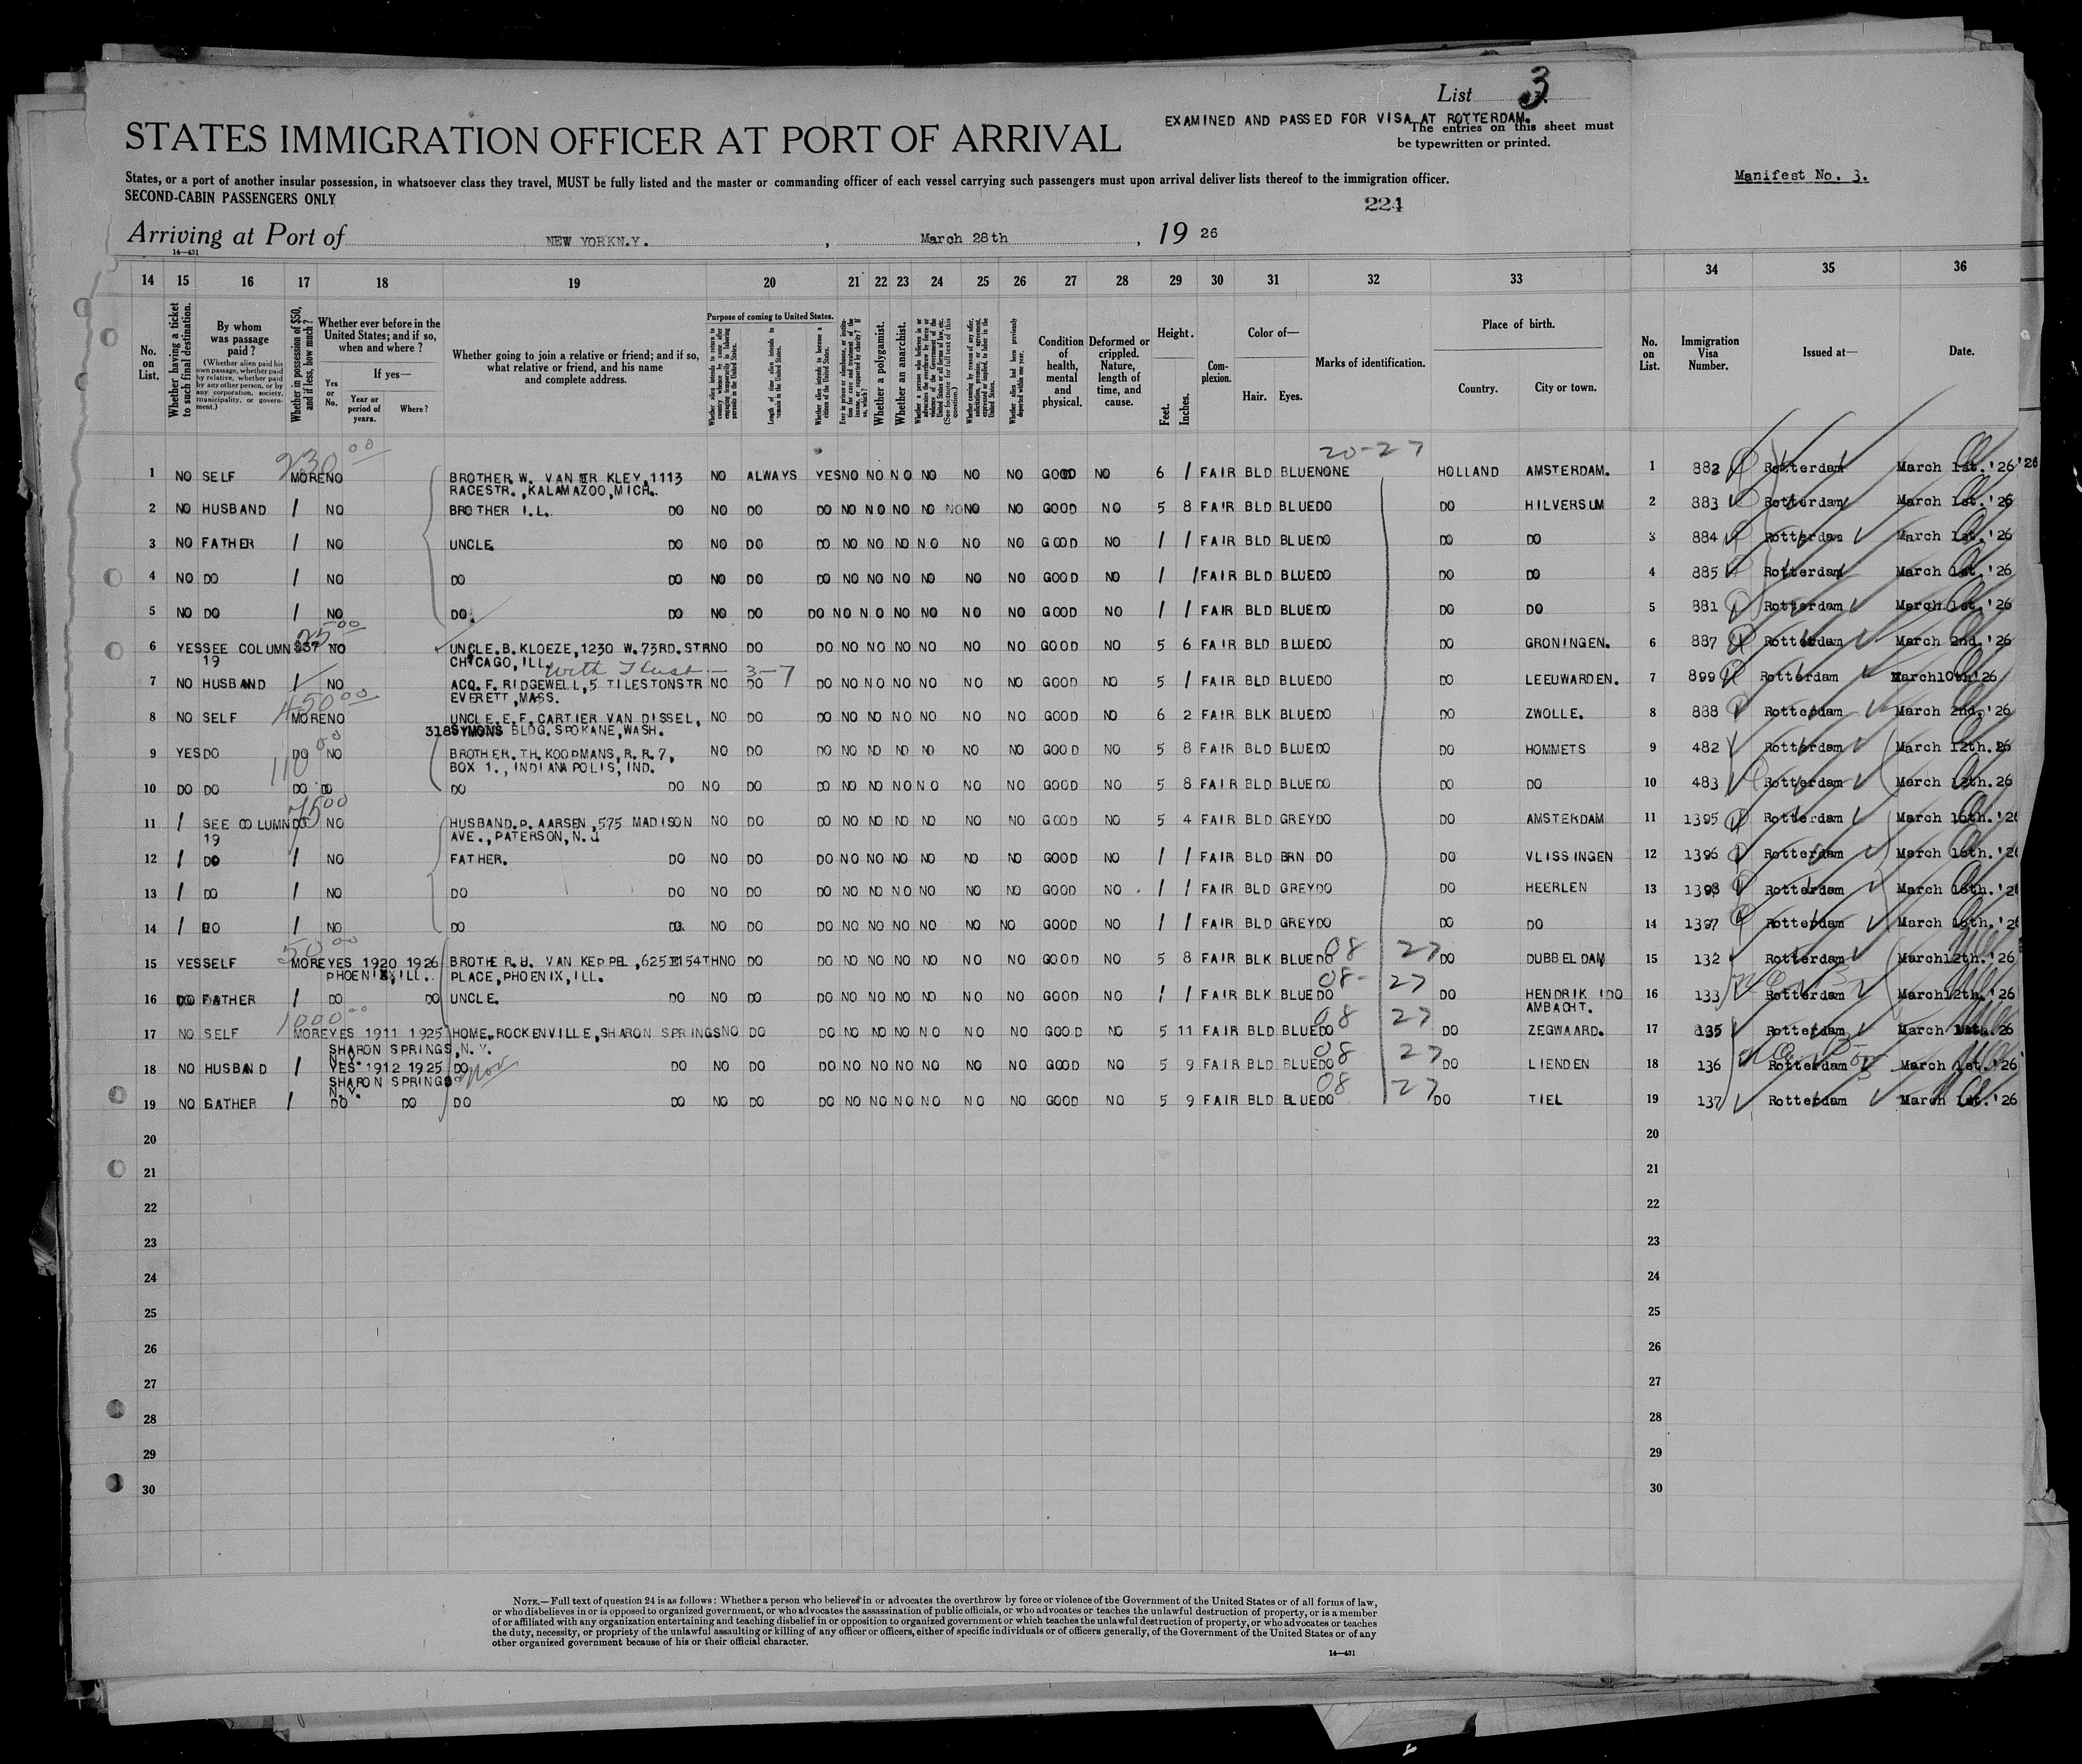 List 3
EXAMINED AND PASSED FOR VISA AT ROTTERDAM.
STATES IMMIGRATION OFFICER AT PORT OF ARRIVAL
The entries on this sheet must
be typewritten or printed.
Manifest No. 3.
States, or a port of another insular possession, in whatsoever class they travel, MUST be fully listed and the master or commanding officer of each vessel carrying such passengers must upon arrival deliver lists thereof to the immigration officer.
SECOND-CABIN PASSENGERS ONLY
224
Arriving at Port of NEW YORKN.Y. , March 28th , 19 26
14—431
14 15 16 17 18 19 20 21 22 23 24 25 26 27 28 29 30 31 32 33 34 35 36
No. on List.
Whether having a ticket to such final destination.
By whom was passage paid?
(Whether alien paid his own passage, whether paid by relative, whether paid by any other person, or by any corporation, society, municipality, or government.)
Whether in possession of $50, and if less, how much?
Whether ever before in the United States; and if so, when and where?
Yes or No.
If yes—
Year or period of years.
Where?
Whether going to join a relative or friend; and if so, what relative or friend, and his name and complete address.
Purpose of coming to United States.
Length of time alien intends to remain in the United States.
Whether alien intends to become a citizen of the United States.
Whether a polygamist.
Whether an anarchist.
Condition of health, mental and physical.
Deformed or crippled. Nature, length of time, and cause.
Height.
Feet. Inches.
Complexion.
Color of—
Hair. Eyes.
Marks of identification.
Place of birth.
Country. City or town.
No. on List.
Immigration Visa Number.
Issued at—
Date.
230 00
20-27
1 NO SELF MORENO BROTHER W. VAN ER KLEY,1113 NO ALWAYS YESNO NO NO NO NO NO GOOD NO 6 / FAIR BLD BLUENONE HOLLAND AMSTERDAM. 1 882 Rotterdam March 1st.'26
RACESTR.,KALAMAZOO,MICH.
2 NO HUSBAND / NO BROTHER I.L. DO NO DO DO NO NO NO NO NONO NO GOOD NO 5 8 FAIR BLD BLUEDO DO HILVERSUM 2 883 Rotterdam March 1st.'26
3 NO FATHER / NO UNCLE. DO NO DO DO NO NO NO NO NO NO GOOD NO / / FAIR BLD BLUEDO DO DO 3 884 Rotterdam March 1st.'26
4 NO DO / NO DO DO NO DO DO NO NO NO NO NO NO GOOD NO / /FAIR BLD BLUEDO DO DO 4 885 Rotterdam March 1st.'26
5 NO DO / NO DO. DO NO DO DO NO NO NO NO NO NO GOOD NO / / FAIR BLD BLUEDO DO DO 5 881 Rotterdam March 1st.'26
25 00
6 YESSEE COLUMN $37 NO UNCLE.B. KLOEZE,1230 W.73RD.STRNO DO DO NO NO NO NO NO NO GOOD NO 5 6 FAIR BLD BLUEDO DO GRONINGEN. 6 887 Rotterdam March 2nd.'26
19 CHICAGO,ILL.
3-7
7 NO HUSBAND / NO ACQ. F. RIDGEWELL,5 TILESTONSTR NO DO DO NO NO NO NO NO NO GOOD NO 5 / FAIR BLD BLUEDO DO LEEUWARDEN. 7 899 Rotterdam March10th'26
EVERETT,MASS.
450 00
8 NO SELF MORENO UNCLE.E.F.CARTIER VAN DISSEL, NO DO DO NO NO NO NO NO NO GOOD NO 6 2 FAIR BLK BLUEDO DO ZWOLLE. 8 888 Rotterdam March 2nd.'26
318SYMONS BLDG.SPOKANE,WASH.
9 YESDO DO NO BROTHER.TH.KOOPMANS,R.R.7, NO DO DO NO NO NO NO NO NO GOOD NO 5 8 FAIR BLD BLUEDO DO HOMMETS 9 482 Rotterdam March 12th.26
110 00
BOX 1.,INDIANAPOLIS,IND.
10 DO DO DO DO DO DO NO DO DO NO NO NO NO NO NO GOOD NO 5 8 FAIR BLD BLUEDO DO DO 10 483 Rotterdam March 12th.26
75 00
11 / SEE COLUMN DO NO HUSBAND.P.AARSEN,575 MADISON NO DO DO NO NO NO NO NO NO GOOD NO 5 4 FAIR BLD GREYDO DO AMSTERDAM 11 1395 Rotterdam March 16th.'26
19 AVE.,PATERSON,N.J
12 / DO / NO FATHER. DO NO DO DO NO NO NO NO NO NO GOOD NO / / FAIR BLD BRN DO DO VLISSINGEN 12 1396 Rotterdam March 16th.'26
13 / DO / NO DO DO NO DO DO NO NO NO NO NO NO GOOD NO / / FAIR BLD GREYDO DO HEERLEN 13 1398 Rotterdam March 16th.'26
14 / DO / NO DO DO. NO DO DO NO NO NO NO NO NO GOOD NO / / FAIR BLD GREYDO DO DO 14 1397 Rotterdam March 19th.'26
50 00
15 YESSELF MOREYES 1920 1926 BROTHER.U. VAN KEPPEL,625E154THNO DO DO NO NO NO NO NO NO GOOD NO 5 8 FAIR BLK BLUEDO 08 27 DO DUBBELDAM 15 132 Rotterdam March12th.'26
PHOENIX,ILL. PLACE,PHOENIX,ILL.
16 DO FATHER / DO DO UNCLE. DO NO DO DO NO NO NO NO NO NO GOOD NO / / FAIR BLK BLUEDO 08- 27 DO HENDRIK IDO 16 133 Rotterdam March12th.'26
AMBACHT.
1000 00
17 NO SELF MOREYES 1911 1925 HOME,ROCKENVILLE,SHARON SPRINGSNO DO DO NO NO NO NO NO NO GOOD NO 5 11 FAIR BLD BLUEDO 08 27 DO ZEGWAARD. 17 135 Rotterdam
SHARON SPRINGS,N.Y.
N.Y.
18 NO HUSBAND / YES 1912 1925 DO DO NO DO DO NO NO NO NO NO NO GOOD NO 5 9 FAIR BLD BLUEDO 08 27 DO LIENDEN 18 136 Rotterdam March 1st.'26
SHARON SPRINGS
N.Y.
19 NO GATHER / DO DO DO DO NO DO DO NO NO NO NO NO NO GOOD NO 5 9 FAIR BLD BLUEDO 08 27 DO TIEL 19 137 Rotterdam March 1st.'26
20 20
21 21
22 22
23 23
24 24
25 25
26 26
27 27
28 28
29 29
30 30
NOTE.—Full text of question 24 is as follows: Whether a person who believes in or advocates the overthrow by force or violence of the Government of the United States or of all forms of law,
or who disbelieves in or is opposed to organized government, or who advocates the assassination of public officials, or who advocates or teaches the unlawful destruction of property, or is a member
of or affiliated with any organization entertaining and teaching disbelief in or opposition to organized government or which teaches the unlawful destruction of property, or who advocates or teaches
the duty, necessity, or propriety of the unlawful assaulting or killing of any officer or officers, either of specific individuals or of officers generally, of the Government of the United States or of any
other organized government because of his or their official character.
14—431